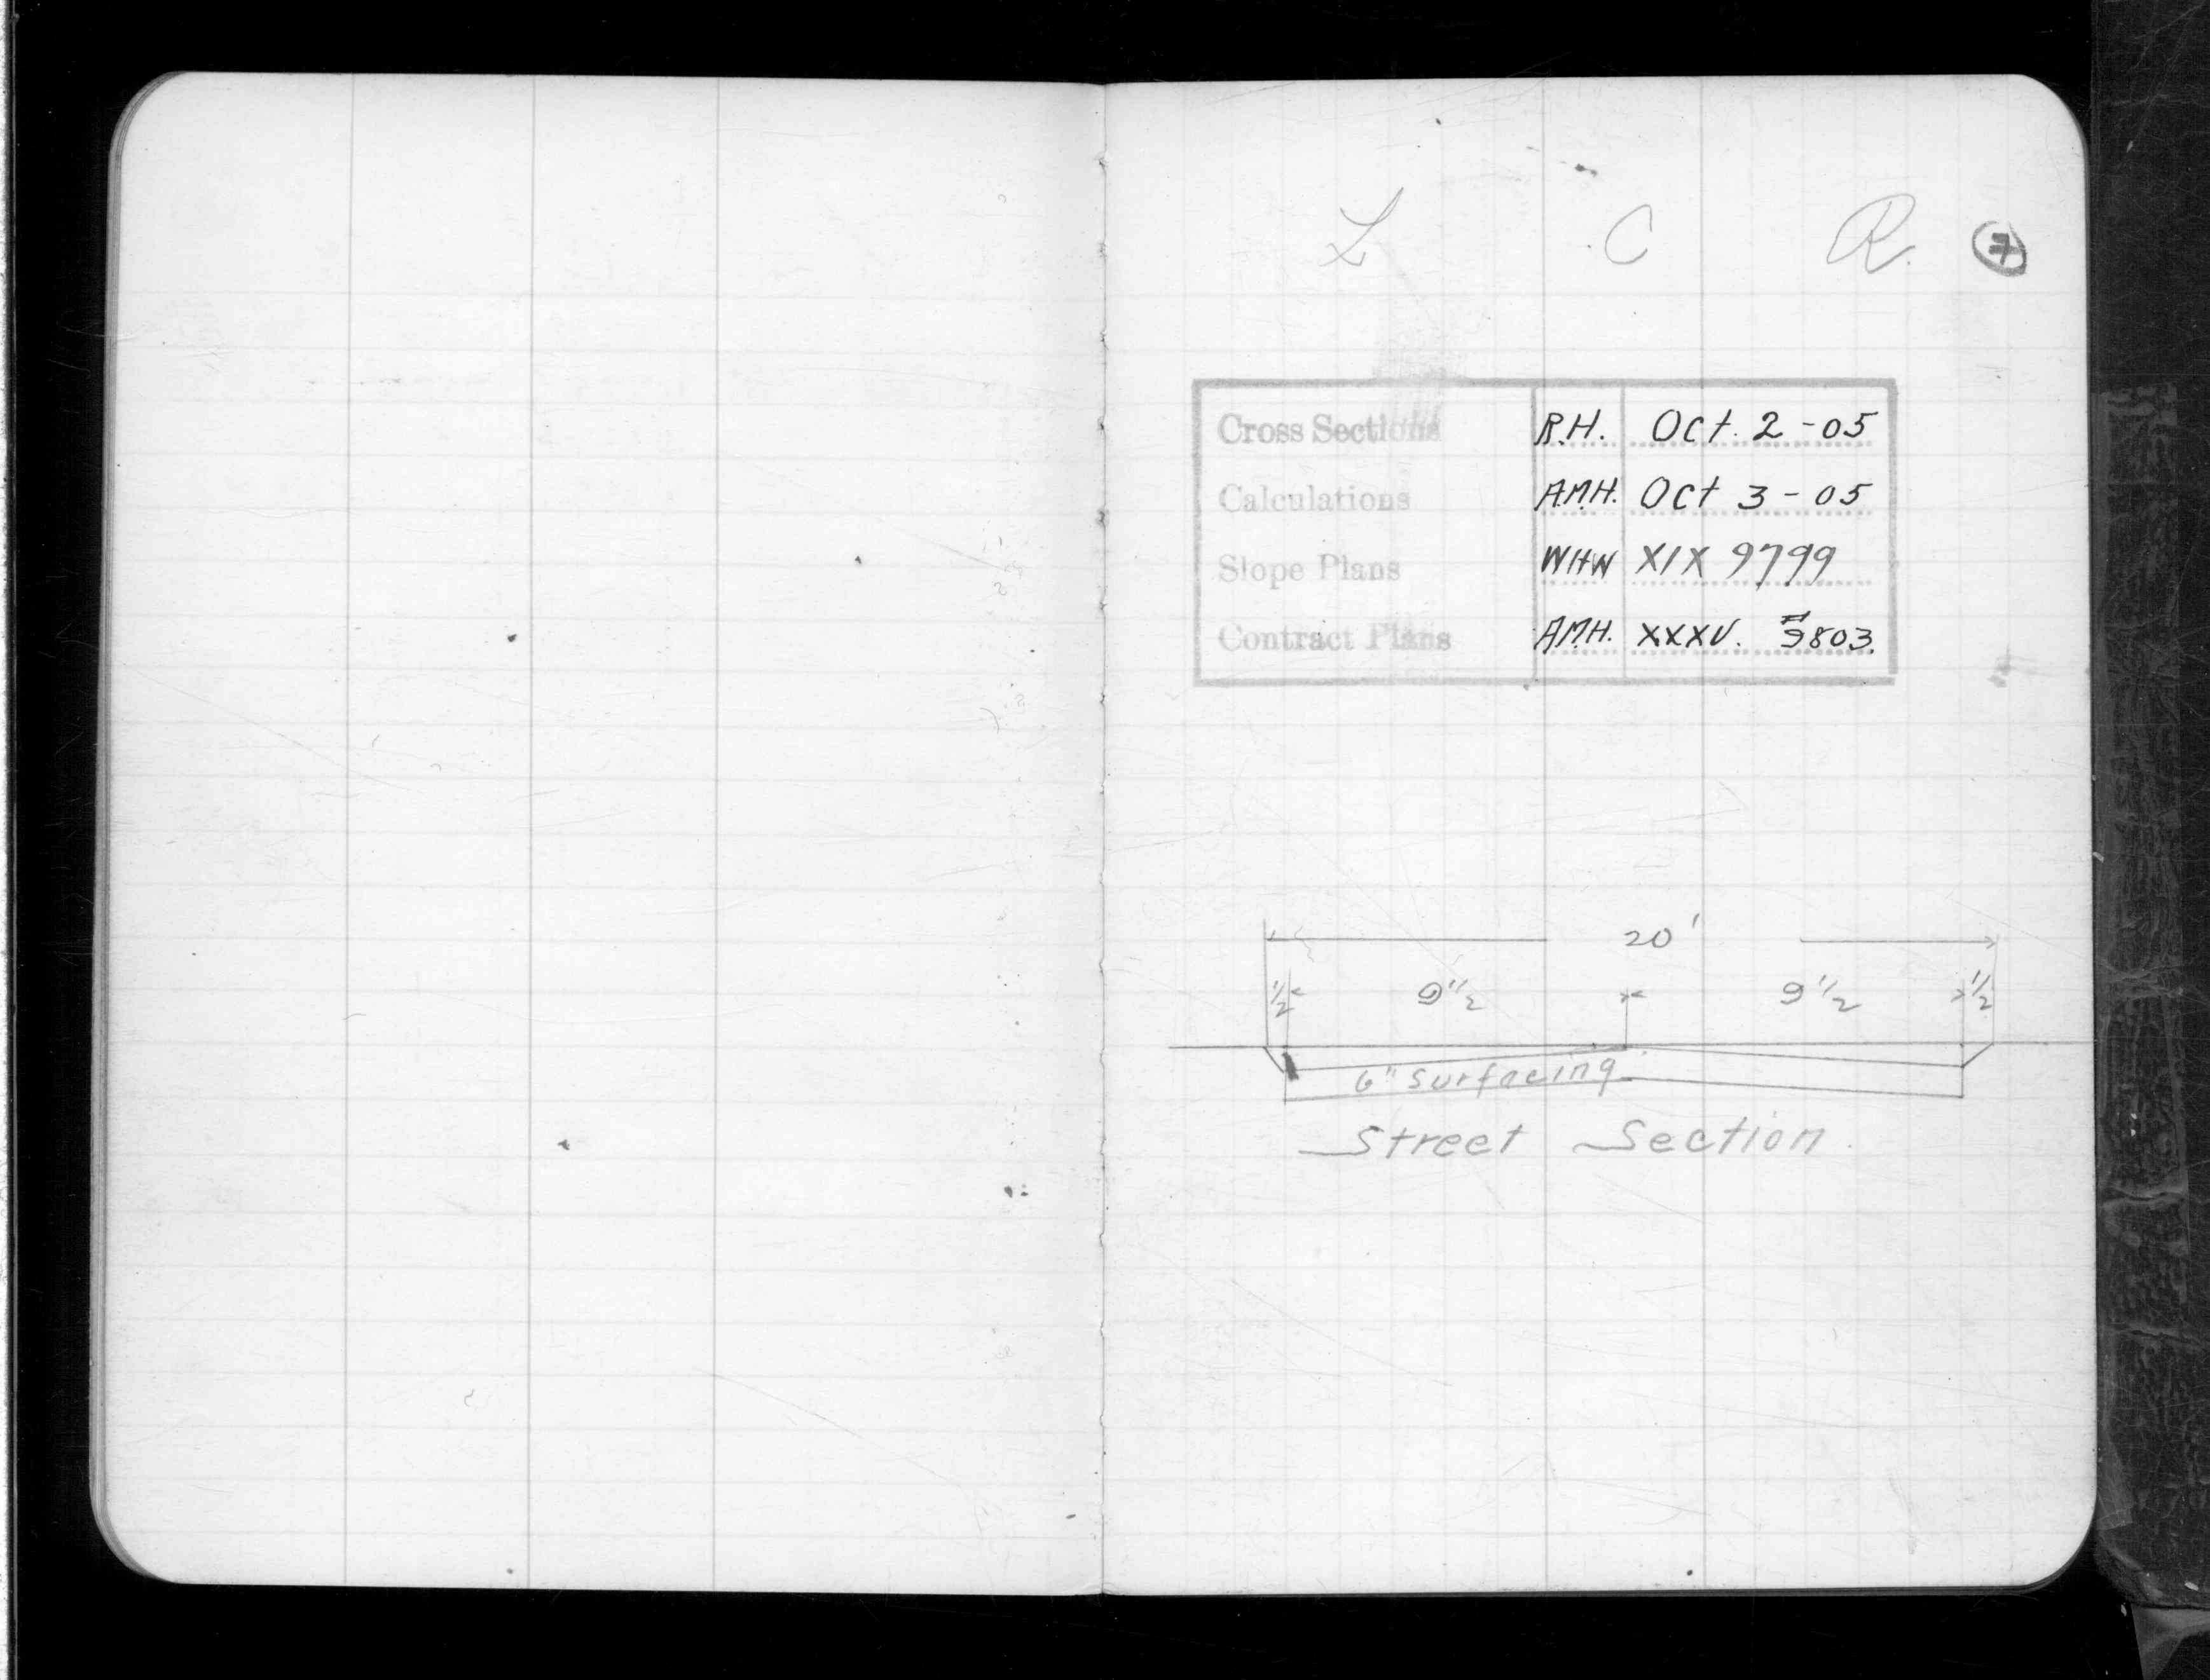 L C R. 7
Cross Sections R.H. Oct. 2-05
Calculations A.M.H. Oct 3-05
Slope Plans WHW XIX 9799
Contract Plans A.M.H. XXXV. 9803.
20'
1/2 9 1/2 9 1/2 1/2
6" surfacing
Street Section.